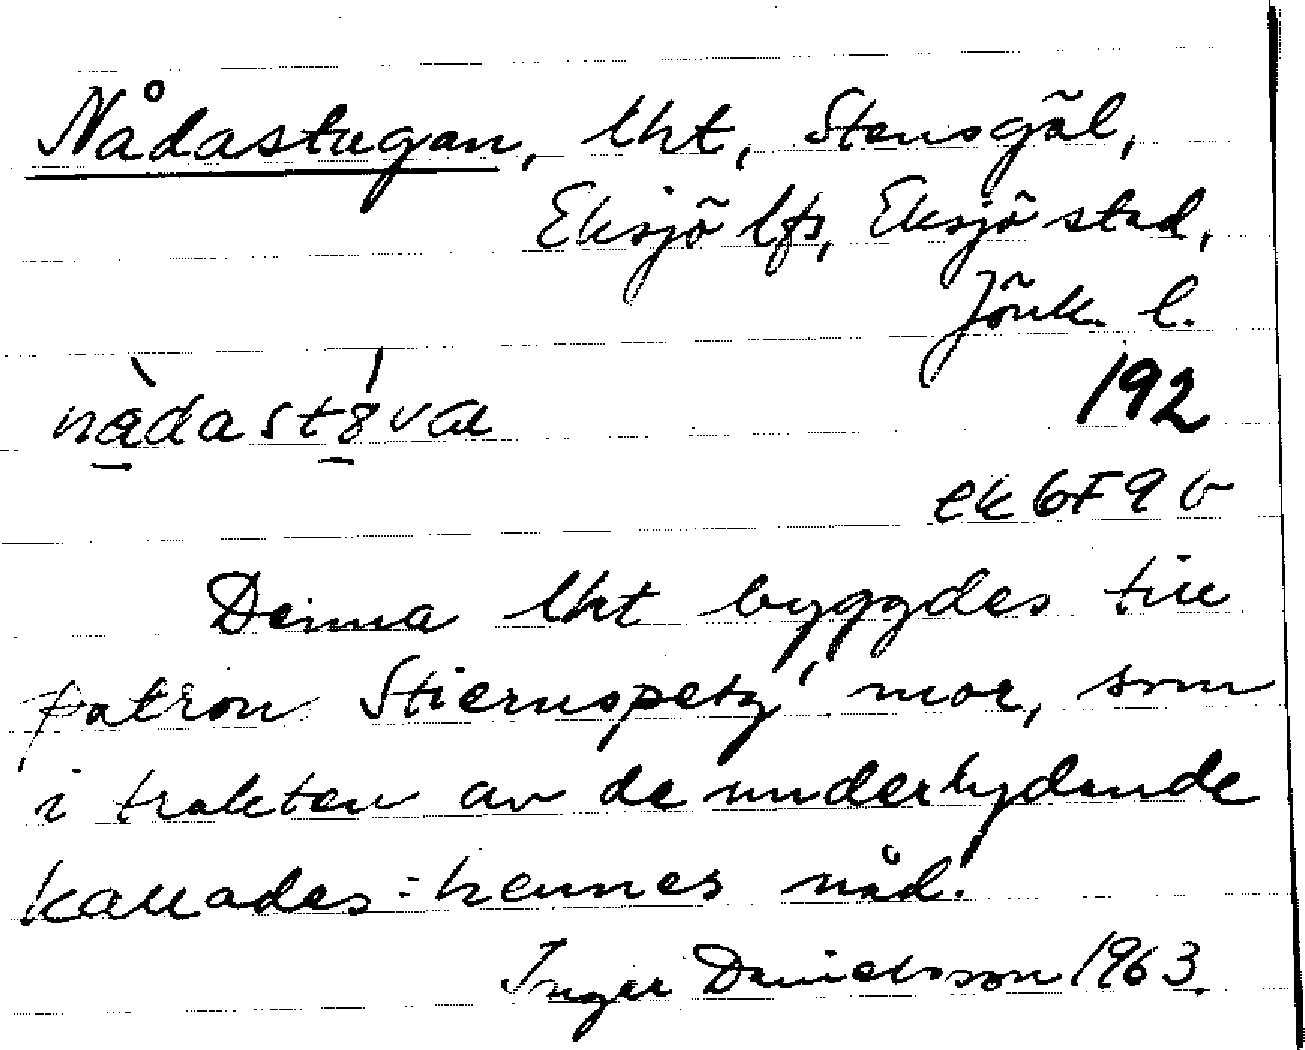 Nådastugan, lht, Stensgöl,
Eksjö lfs, Eksjö stad,
Jönk. l.
nàdastȯ́va 192
ek 6F9b
Denna lht byggdes till
patron Stiernspetz' mor, som
i trakten av de underlydande
kallades: hennes nåd.
Inger Danielsson 1963.